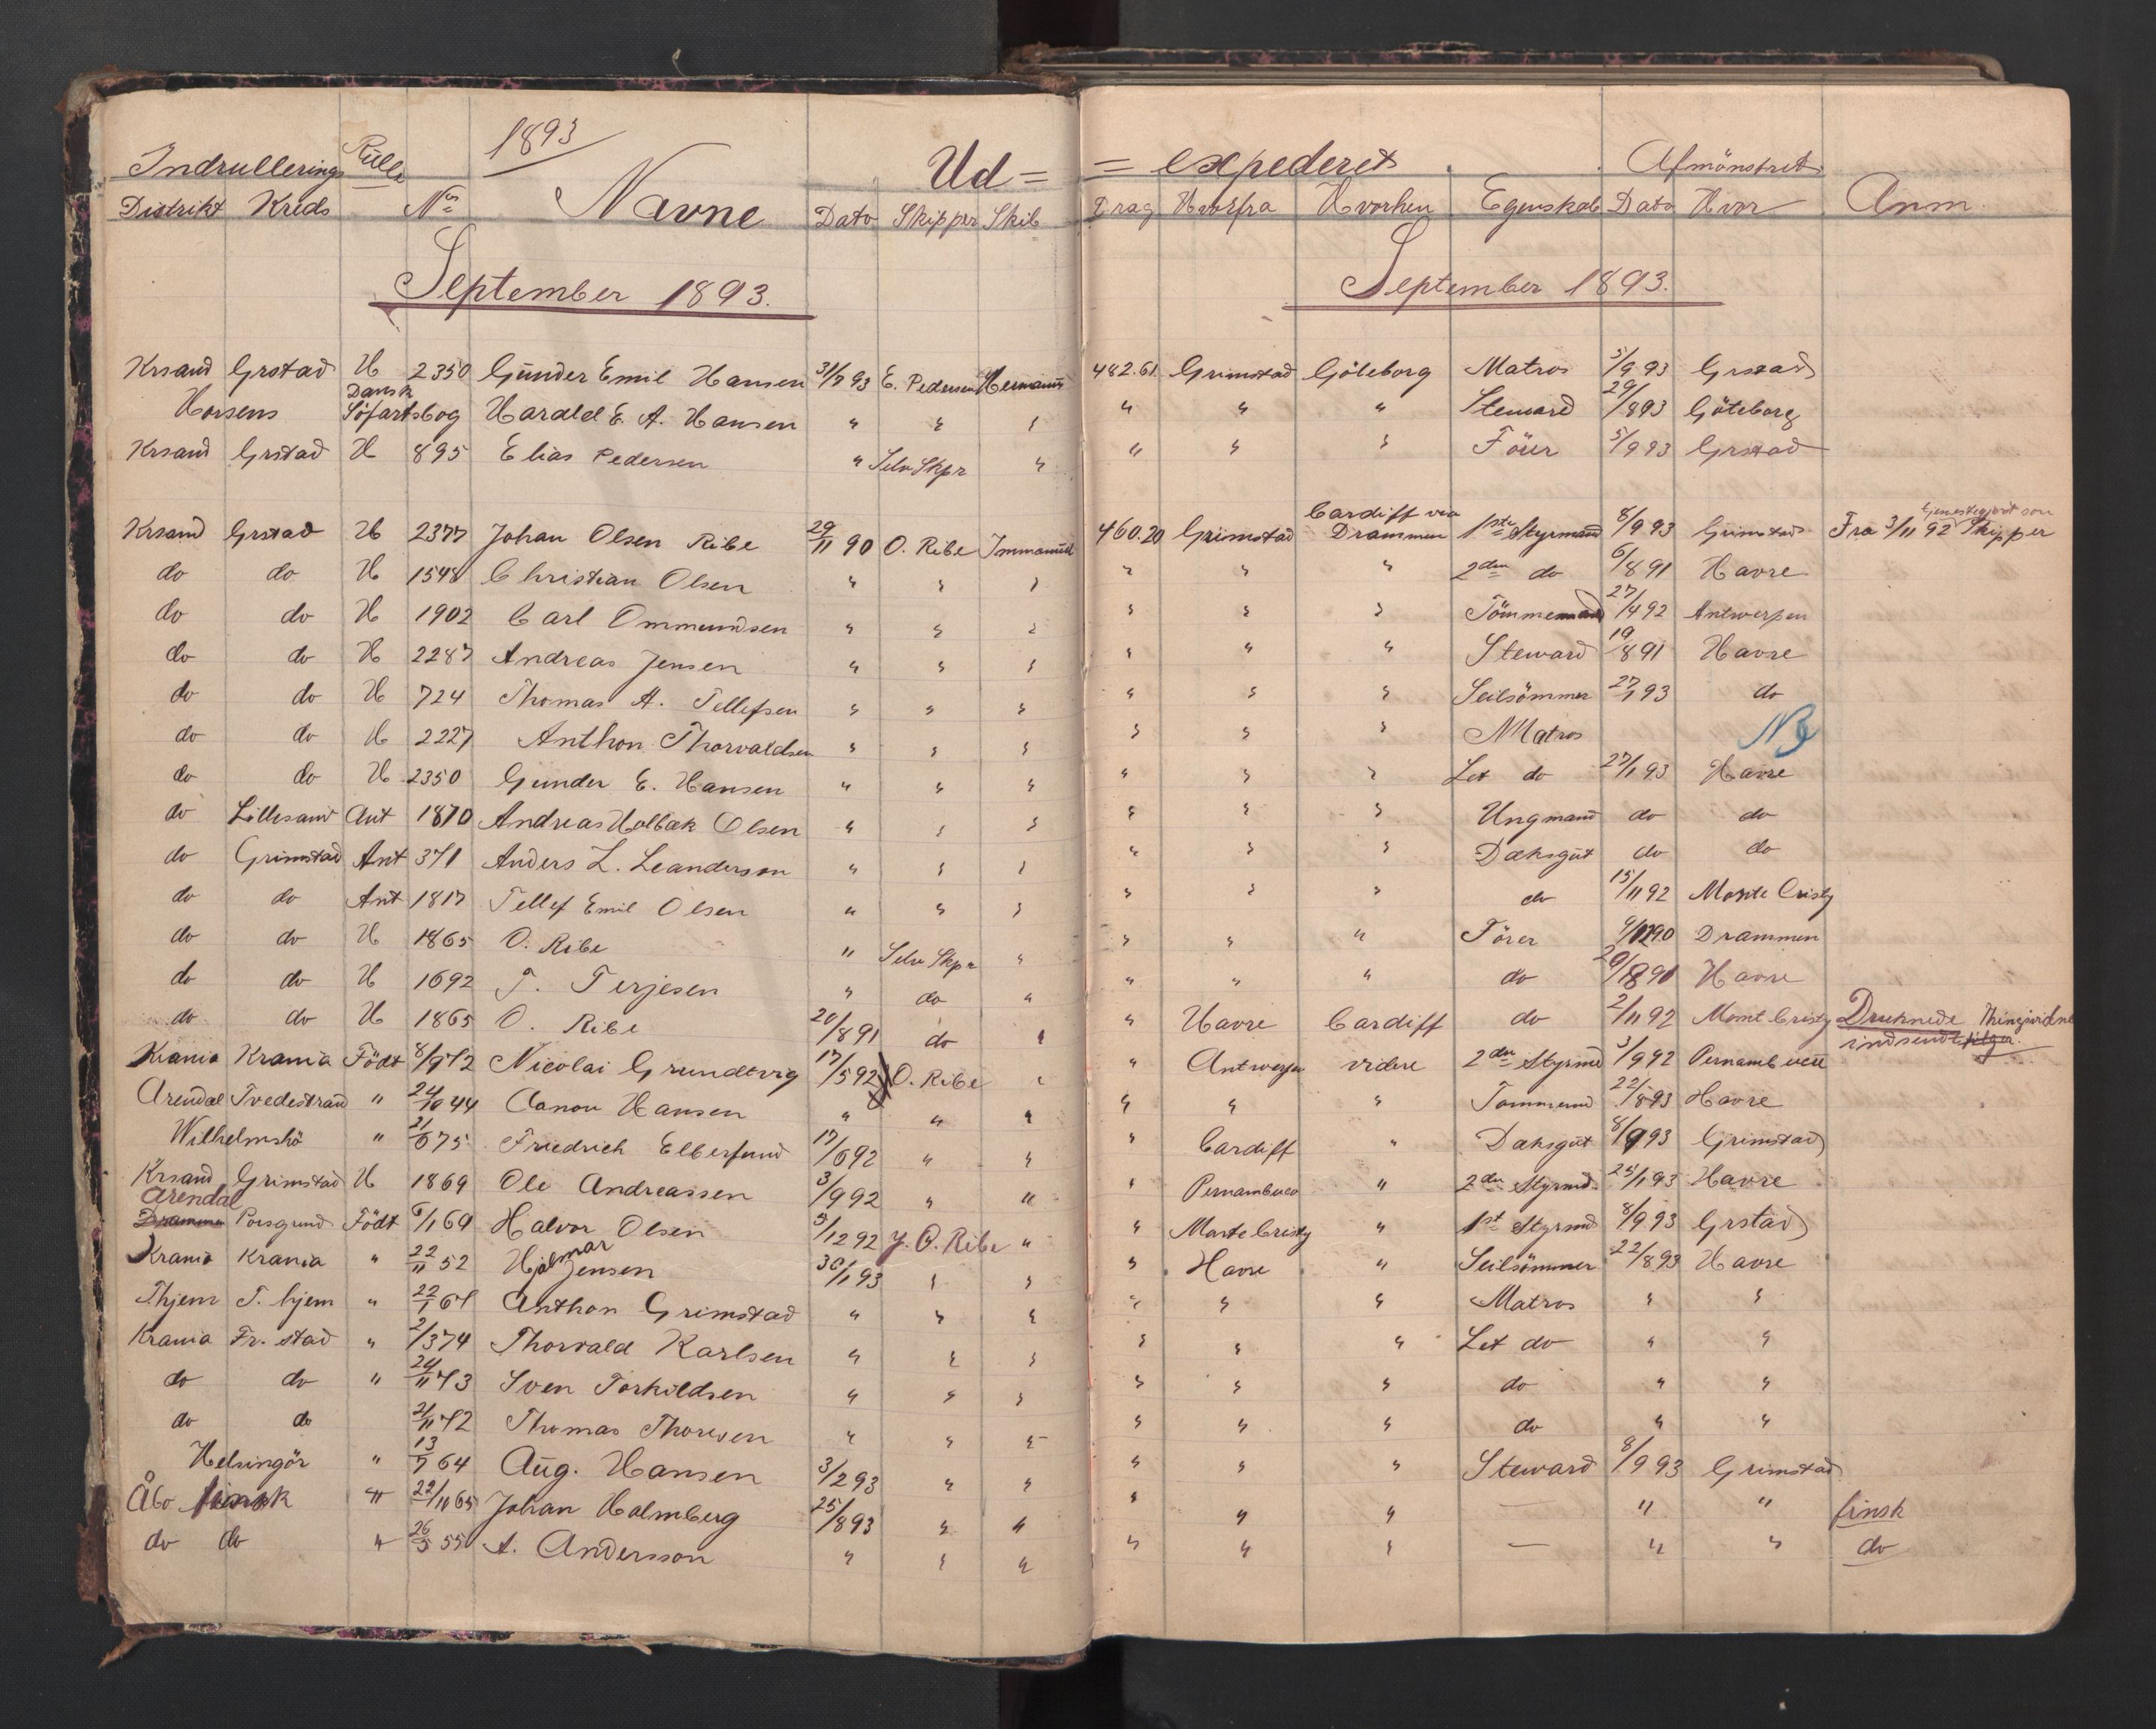 1893
Indrullerings Rulle Ud= = expederet Afmönstret
Distrikt Kreds No Navne Dato Skipper Skib Drag Hvorfra Hvorhen Egenskab Dato Hvor Anm.
September 1893. September 1893.
Krsand Grstad H 2350 Günder Emil Hansen 31/7 93 E. Pedersen Hermann 482.61 Grimstad Göteborg Matros 5/9 93 Grstad
Horsens Dansk Söfartsbog Harald E. A. Hansen " " " " " " Steward 29/8 93 Göteborg
Krsand Grstad H 895 Elias Pedersen " Selv Skpr " " " " Förer 5/9 93 Grstad
Krsand Grstad H 2377 Johan Olsen Ribe 29/11 90 O. Ribe Immanuel 460.20 Grimstad Cardiff via Drammen 1ste Styrmand 8/9 93 Grimstad Fra 3/11 92 Skipper
do do H 1548 Christian Olsen " " " " " " 2den do 6/8 91 Havre
do do H 1902 Carl Ommundsen " " " " " " Tömmermand 27/4 92 Antwerpen
do do H 2287 Andreas Jensen " " " " " " Steward 19/8 91 Havre
do do H 724 Thomas A. Tellefsen " " " " " " Seilsömmer 27/1 93 do
do do H 2227 Anthon Thorvaldsen " " " " " " Matros NB
do do H 2350 Gunder E. Hansen " " " " " " Let do 27/1 93 Havre
do Lillesand Ant 1870 Andreas Holbæk Olsen " " " " " " Ungmand do do
do Grimstad Ant 371 Anders L. Leanderson " " " " " " Dæksgüt do do
do do Ant 1817 Tellef Emil Olsen " " " " " " do 15/11 92 Monte Cristy
do do H 1865 O. Ribe " Selv Skpr " " " " Förer 9/12 90 Drammen
do do H 1692 T. Terjesen " do " " " " do 20/8 91 Havre
do do H 1865 O. Ribe 20/8 91 do " " Havre Cardiff do 2/11 92 Mont Cristy Druknede Thingvidne indsendt
Krania Krania Födt 8/9 72 Nicolai Grundtvig 17/5 92 O. Ribe " " Antwerpen videre 2den Styrmd 3/9 92 Pernambuco
Arendal Tvedestrand " 24/10 44 Aanon Hansen " " " " " " Tömmermd 22/8 93 Havre
Wilhelmshö " 21/6 75 Friedrich Elberfund 17/6 92 " " " Cardiff " Dæksgüt 8/9 93 Grimstad
Krsand Grimstad H 1869 Ole Andreassen 3/9 92 " " " Pernambuco " 2den Styrmd 25/1 93 Havre
Arendal Porsgrund Födt 6/1 69 Halvor Olsen 5/12 92 J. O. Ribe " " Monte Cristy " 1st Styrmd 8/9 93 Grstad
Krania Krania " 22/11 52 Hjalmar Jensen 30/1 93 " " " Havre " Seilsömmer 22/8 93 Havre
Thjem T. hjem " 22/1 67 Anthon Grimstad " " " " " " Matros " "
Krania Fr. stad " 2/3 74 Thorvald Karlsen " " " " " " Let do " "
do do " 24/11 73 Sven Torkildsen " " " " " " do " "
do do 21/11 72 Thomas Thoresen " " " " " " do " "
Helsingör " 13/7 64 Aüg. Hansen 3/2 93 " " " " " Steward 8/9 93 Grimstad
Åbo finsk " 22/11 65 Johan Holmberg 25/8 93 " " " " " — " " finsk
do do " 26/5 55 A. Andersson " " " " " " — " " do